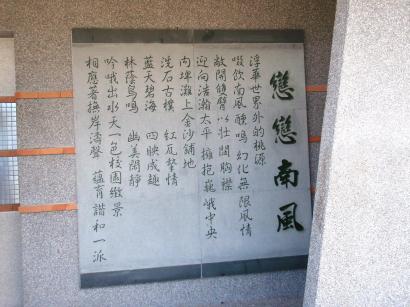 戀戀南風
浮華世界外的桃源
啜飲南風酣鳴 幻化無限風情
敞開雙臂以壯闊胸襟
迎向浩瀚太平 擁抱巍峨中央
向埤灘上金沙鋪地
洗石古樸 紅瓦摯情
藍天碧海 四映成趣
林蔭鳥鳴 幽美閒靜
吟哦出水天一色校園緻景
相應著撫岸濤聲 蘊育諧和一派